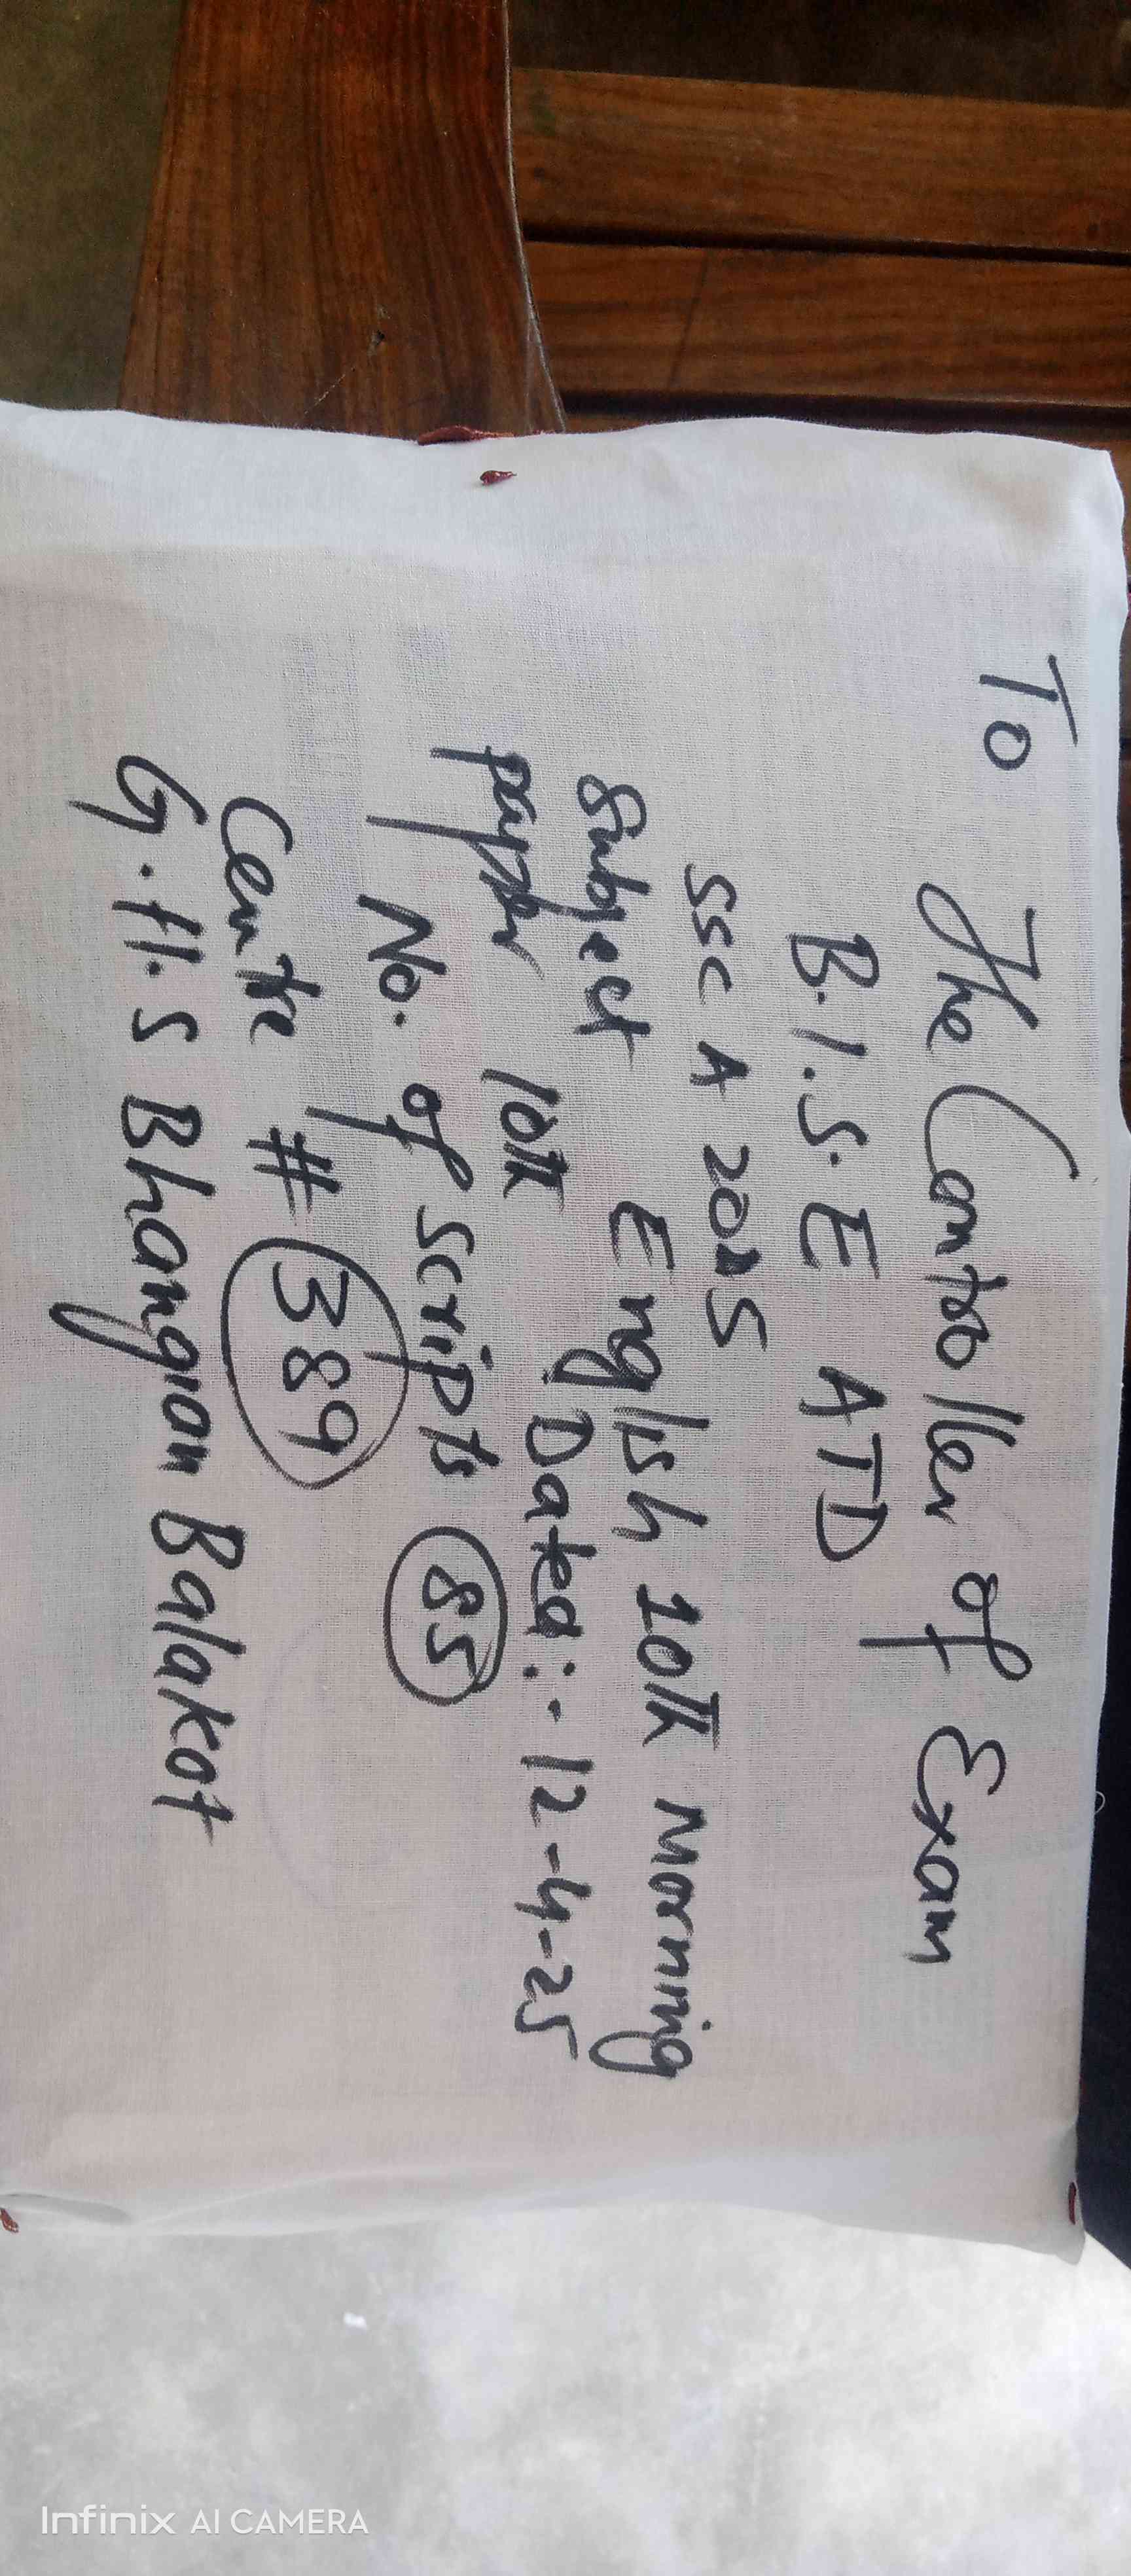 To
The Controller of Exam
B.I.S.E ATD
SSC A 2025
Subject English 10th Morning
paper 10th Dated:- 12-4-25
No. of Scripts 85
Centre # 389
G.H.S Bhangian Balakot
Infinix AI CAMERA